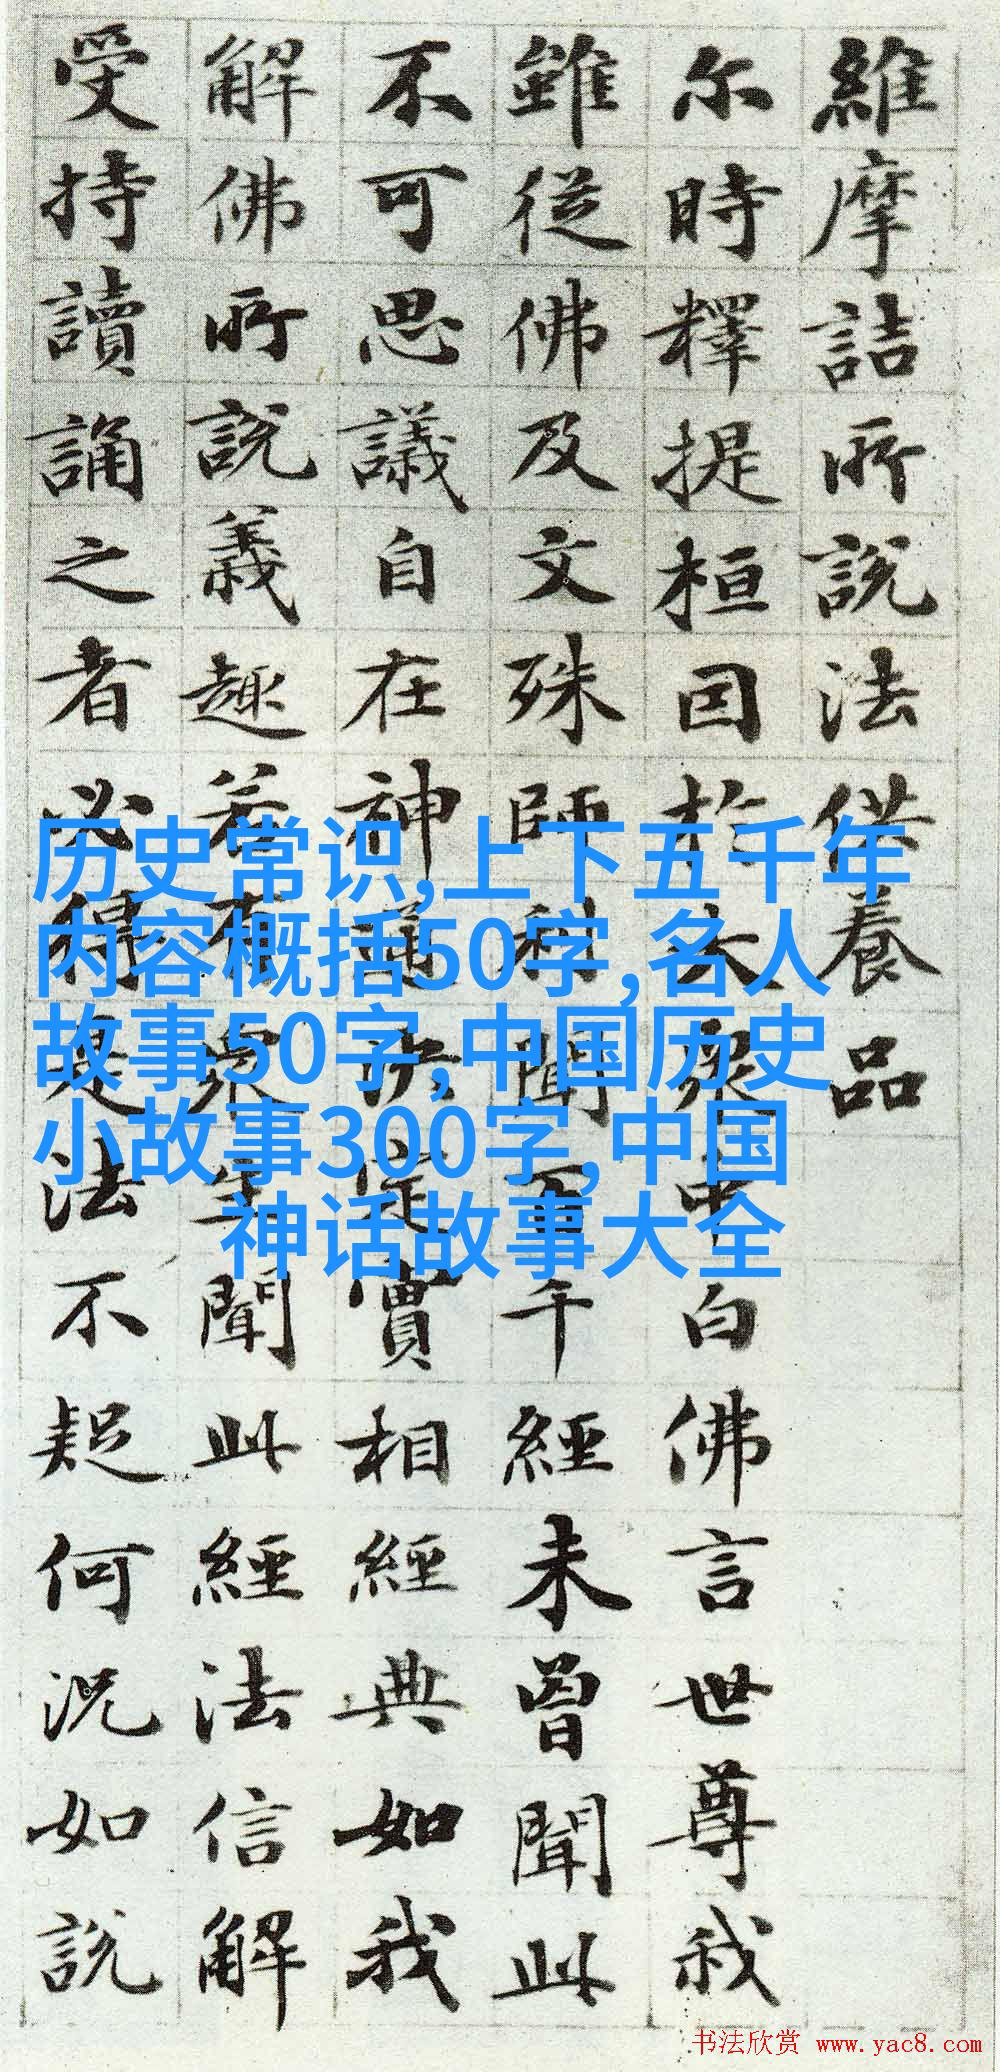 維摩詰所說法供養品
尒時釋提桓因於大衆中白佛言世尊我
雖從佛及文殊師利聞百千經未曾聞此
不可思議自在神通決定實相經典如我
解佛所說義趣若有衆生聞此經法信解
受持讀誦之者必得是法不疑何況如說
历史常识,上下五千年
内容概括50字,名人
故事50字,中国历史
小故事300字,中国
神话故事大全
书法欣赏 www.yac8.com